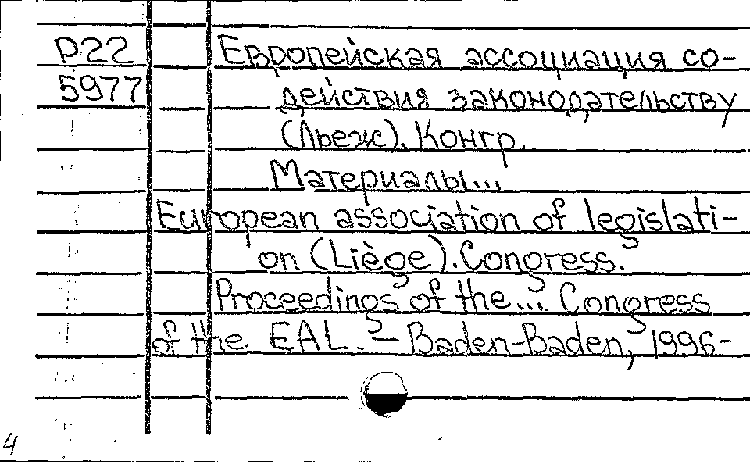 Р22 Европейская ассоциация со-
5977 действия законодательству
(Льеж). Конгр.
Материалы...
European association of legislati-
on (Liège). Congress.
Proceedings of the... Congress
of the EAL. – Baden-Baden, 1996-
4